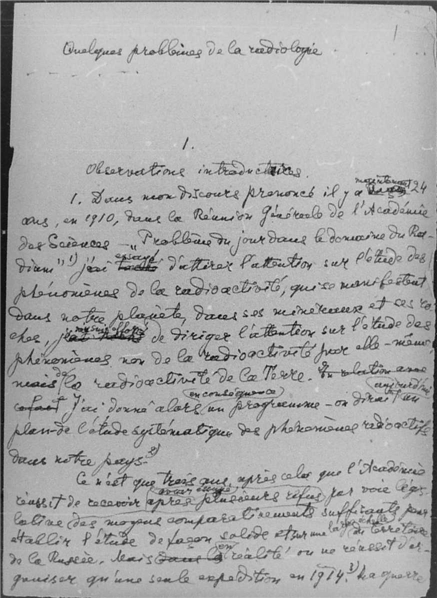 1
Quelques problèmes de la radiologie.
1.
Observations introductives.
1. Dans mon discours prononcé il y a maintenant 24
ans, en 1910, dans la Réunion Générale de l'Académie
des Sciences – „Problème du jour dans le domaine du Ra-
dium" 1) j'ai essayé d'attirer l'attention sur l'étude des
phénomènes de la radioactivité, qui se manifestent
dans notre planète, dans ses minéraux et ses ro-
ches, de diriger l'attention sur l'étude des
phénomènes non de la radioactivité par elle-même,
mais de la radioactivité de la Terre.
J'ai donné alors en conséquence un programme – on dirait aujourd'hui un
plan de l'étude systématique des phénomènes radioactifs
dans notre pays. 2)
Ce n'est que trois ans après cela que l'Académie
réussit de recevoir après plusieurs refus par voie légis-
lative des moyens comparativement suffisants pour
établir l'étude de façon solide et sur une large échelle du territoire
de la Russie. Mais en réalité on ne réussit d'or-
ganiser qu'une seule expedition en 1914. 3) La guerre